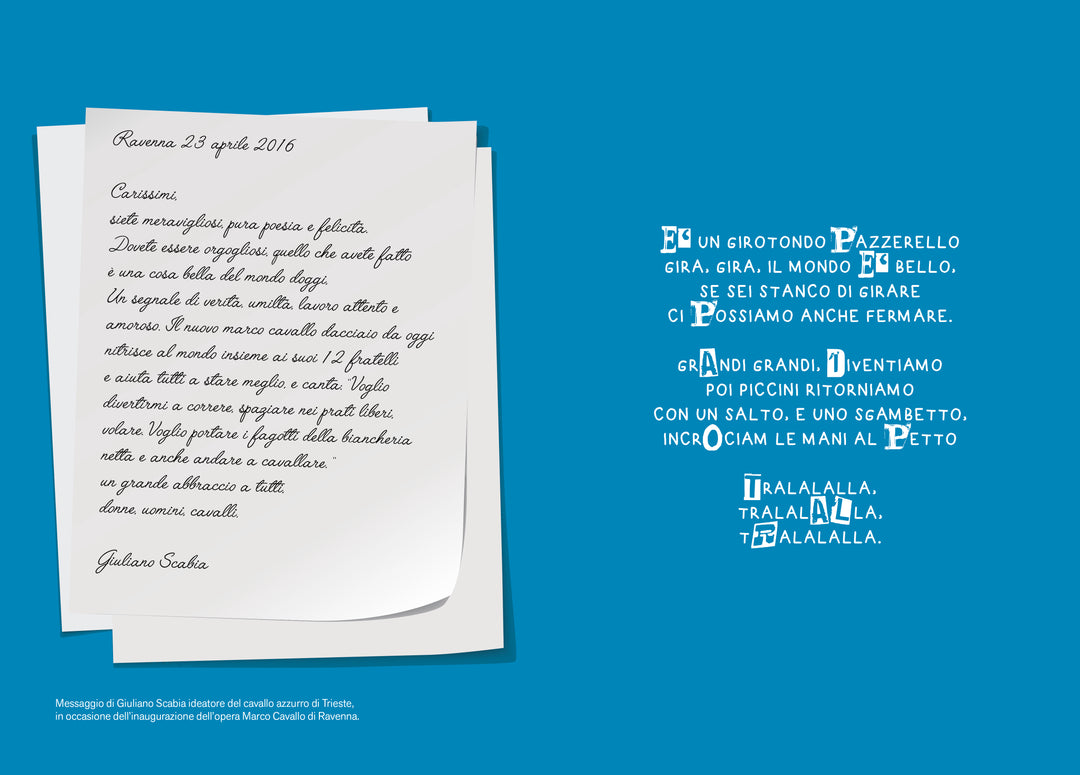 Ravenna 23 aprile 2016
Carissimi,
siete meravigliosi, pura poesia e felicità.
Dovete essere orgogliosi, quello che avete fatto
è una cosa bella del mondo doggi,
Un segnale di verità, umiltà, lavoro attento e
amoroso. Il nuovo marco cavallo dacciaio da oggi
nitrisce al mondo insieme ai suoi 12 fratelli
e aiuta tutti a stare meglio, e canta. "Voglio
divertirmi a correre, spaziare nei prati liberi,
volare. Voglio portare i fagotti della biancheria
netta e anche andare a cavallare. "
un grande abbraccio a tutti,
donne, uomini, cavalli.
Giuliano Scabia
Messaggio di Giuliano Scabia ideatore del cavallo azzurro di Trieste,
in occasione dell'inaugurazione dell'opera Marco Cavallo di Ravenna.
E‘ UN GIROTONDO PAZZERELLO
GIRA, GIRA, IL MONDO E‘ BELLO,
SE SEI STANCO DI GIRARE
CI POSSIAMO ANCHE FERMARE.
GRANDI GRANDI, DIVENTIAMO
POI PICCINI RITORNIAMO
CON UN SALTO, E UNO SGAMBETTO,
INCROCIAM LE MANI AL PETTO
TRALALALLA,
TRALALALLA,
TRALALALLA.